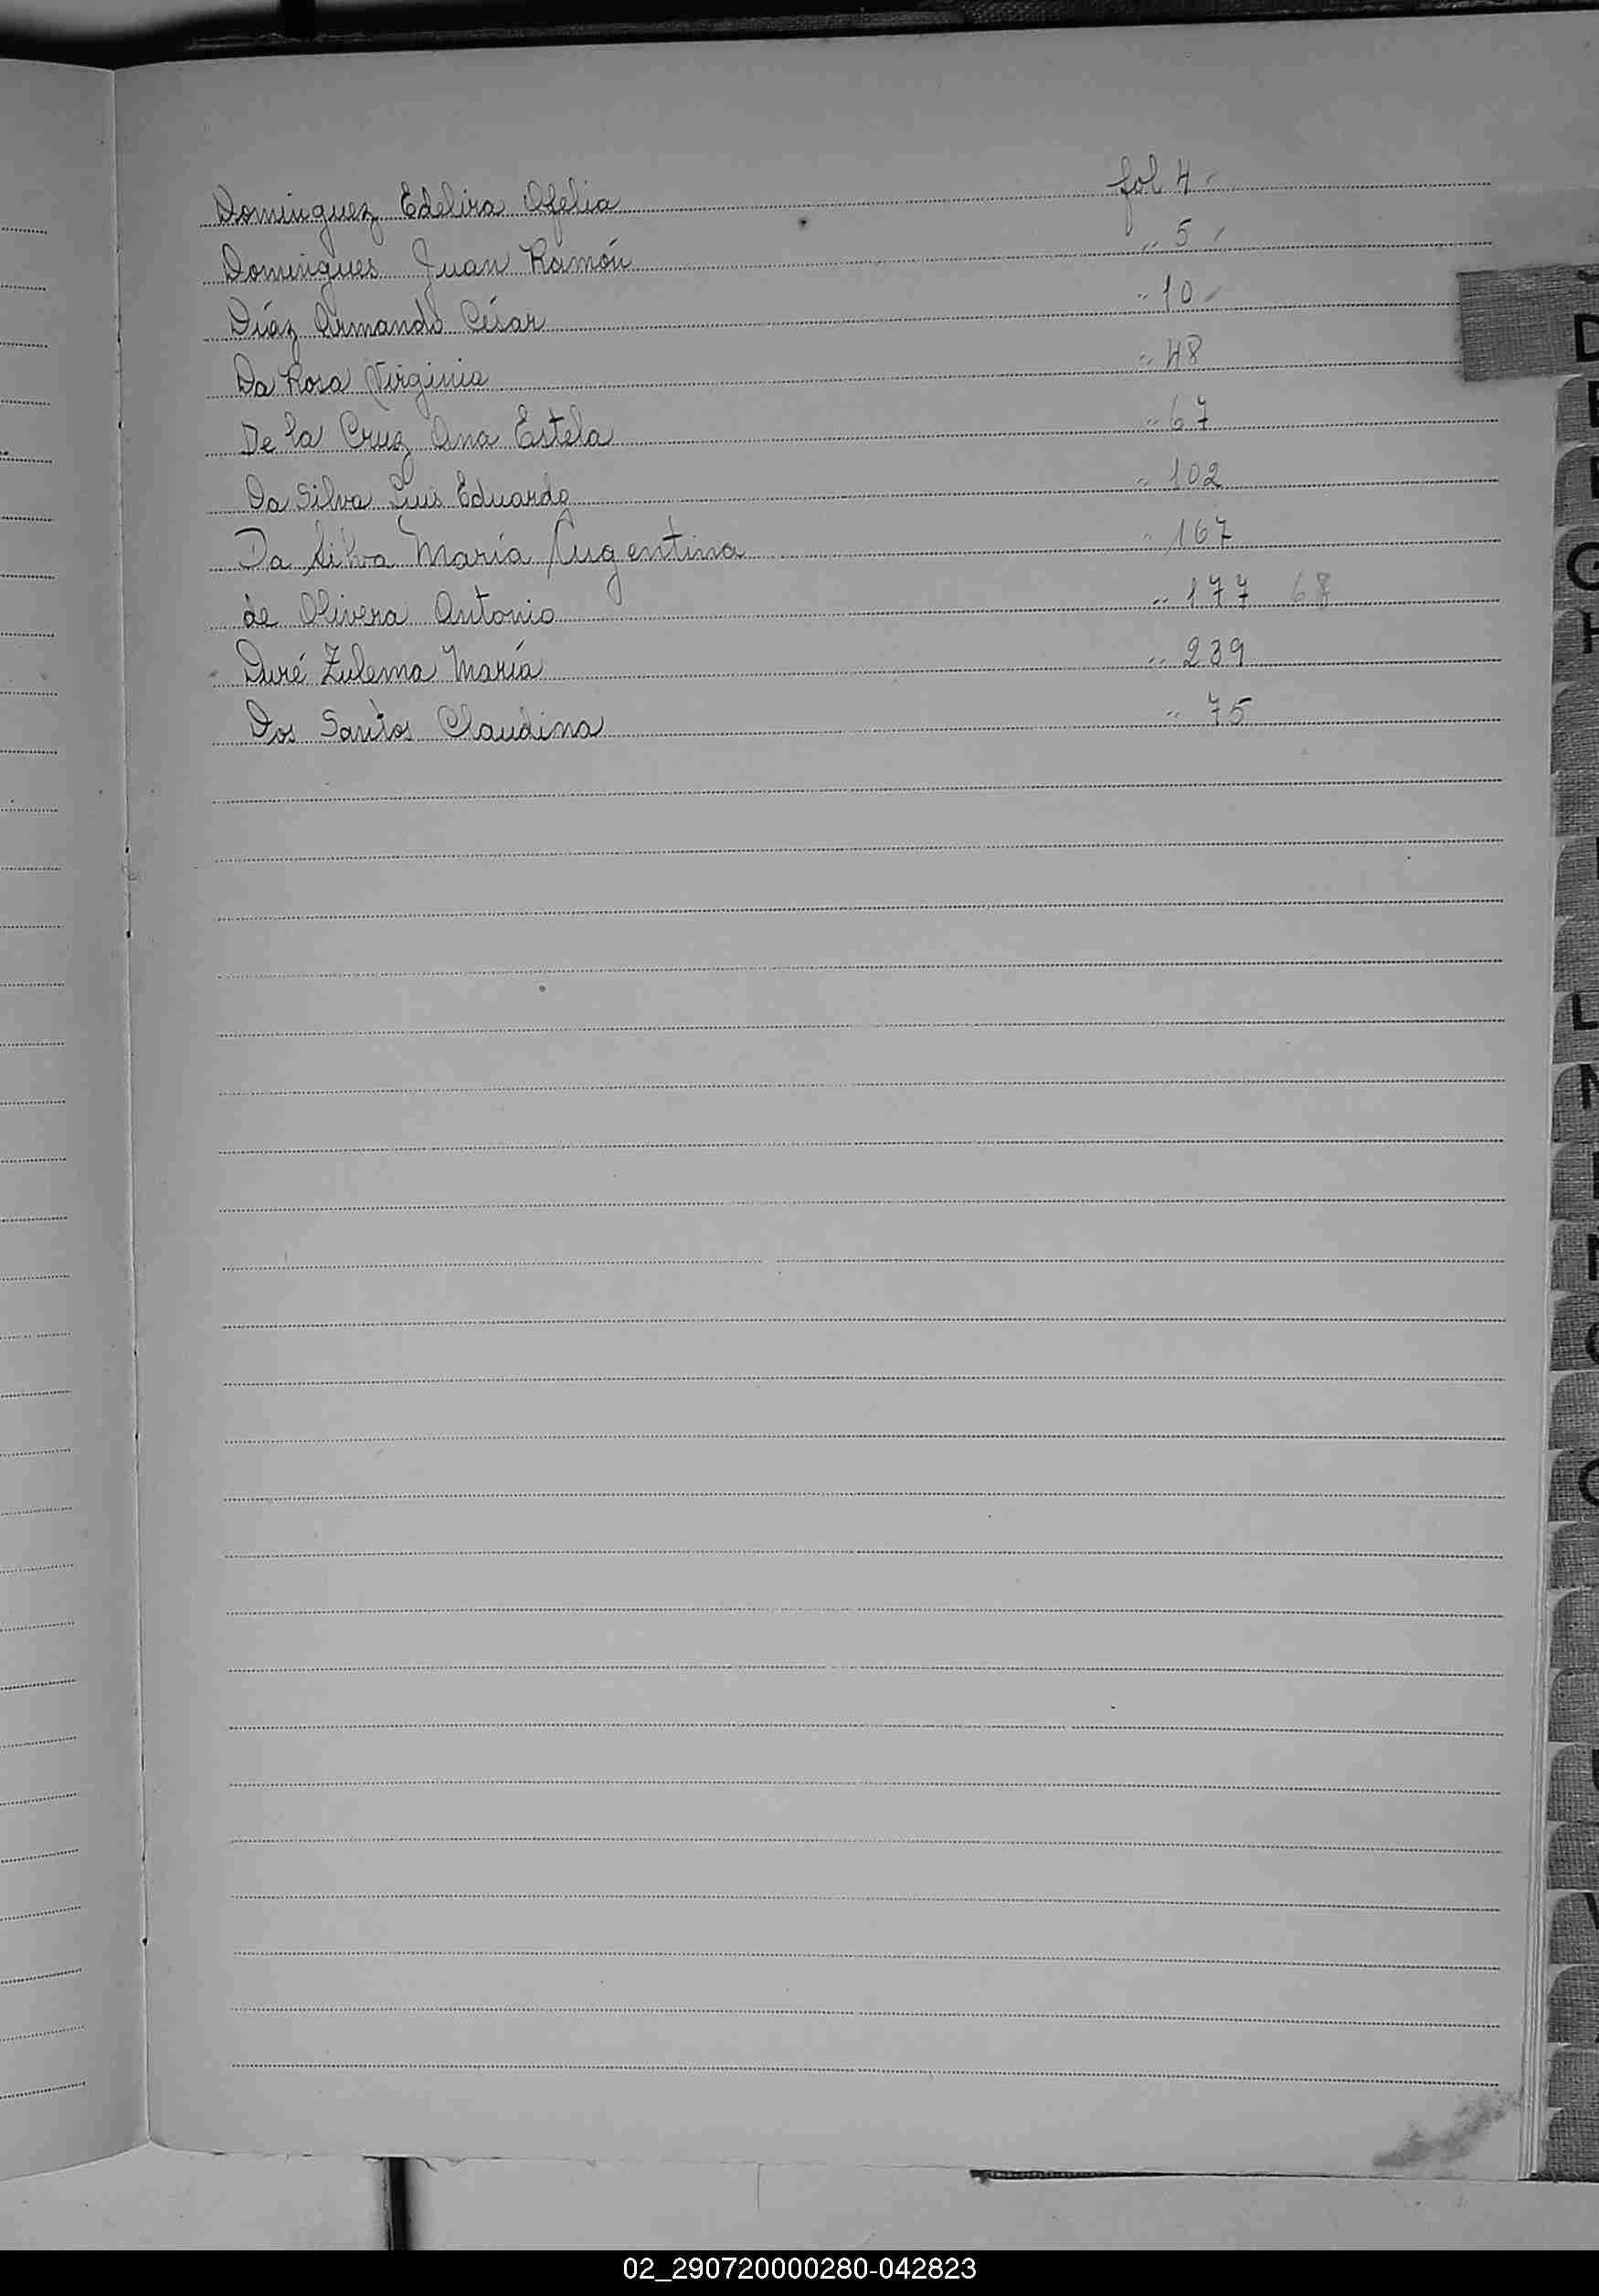 Dominguez Edelira Ofelia fol 4 -
Domingues Juan Ramón " 5 -
Diáz Armando César " 10 -
Da Rosa Virginia " 48
De la Cruz Ana Estela " 67
Da Silva Luis Eduardo " 102
Da Silva María Argentina " 167
de Olivera Antonio " 177 68
Duré Zulema María " 239
Dos Santos Claudina " 75
D
G
H
L
02_290720000280-042823